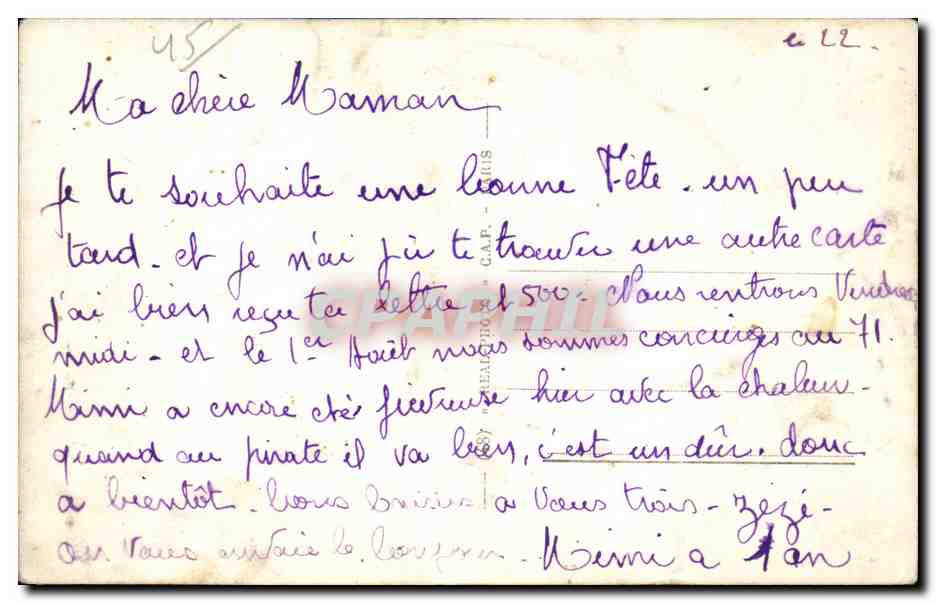 45
le 22.
Ma chère Maman
Je te souhaite une bonne Fête. un peu
tard. et je n'ai pu te trouver une autre carte
j'ai bien reçu ta lettre et 500. Nous rentrons Vendredi
midi - et le 1er Août nous sommes concierges au 71.
Mimi a encore été fievreuse hier avec la chaleur.
quand au pirate il va bien, c'est un dûr. donc
a bientôt. bons baisers a Vous trois - Zézé -
on vous envoie le bonjour. Mimi a 1 an
(68) "REAL-PHOTO" C.A.P. - PARIS
CPAPHIL